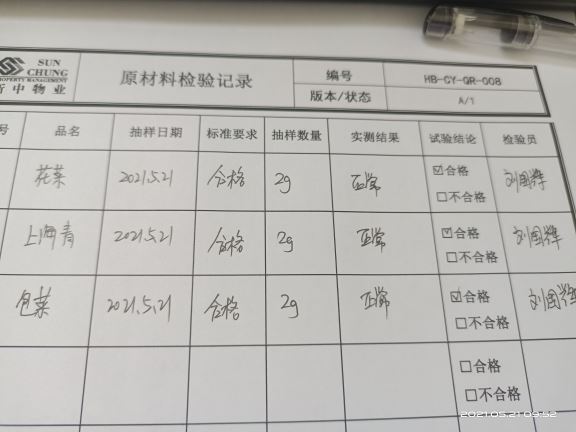 SUN
CHUNG
PROPERTY MANAGEMENT
新中物业
原材料检验记录
编号
HB-CY-QR-008
版本/状态
A/1
号
品名
抽样日期
标准要求
抽样数量
实测结果
试验结论
检验员
花菜
2021.5.21
合格
2g
正常
☑合格
□不合格
刘国辉
上海青
2021.5.21
合格
2g
正常
☑合格
□不合格
刘国辉
包菜
2021.5.21
合格
2g
正常
☑合格
□不合格
刘国辉
□合格
□不合格
2021.05.21 09:52